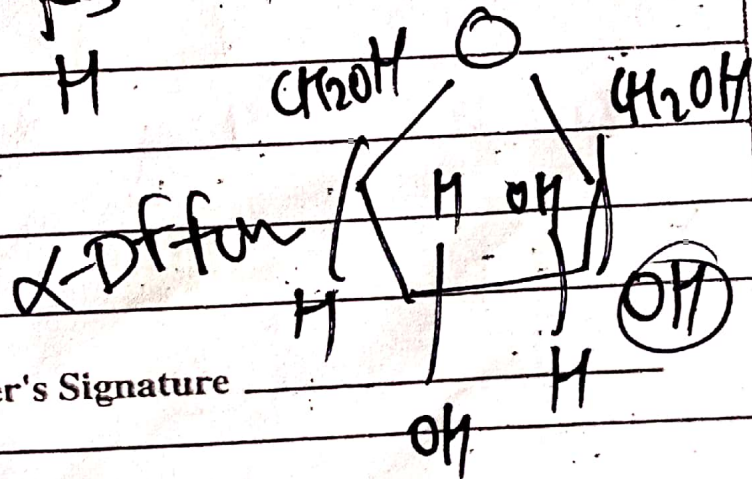 H
CH2OH O CH2OH
H OH
α-D f fun
H OH
er's Signature
H
OH